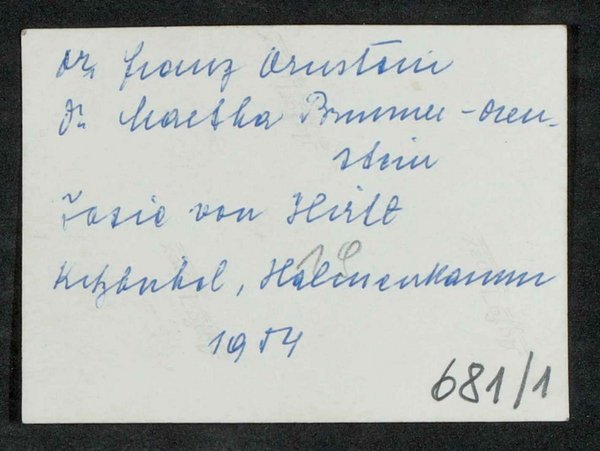 Dr. Franz Ornstein
Dr. Martha Brunner-Orn-
stein
Josie von Hirlt
Kitzbühel, Hahnenkamm
1954
19
681/1